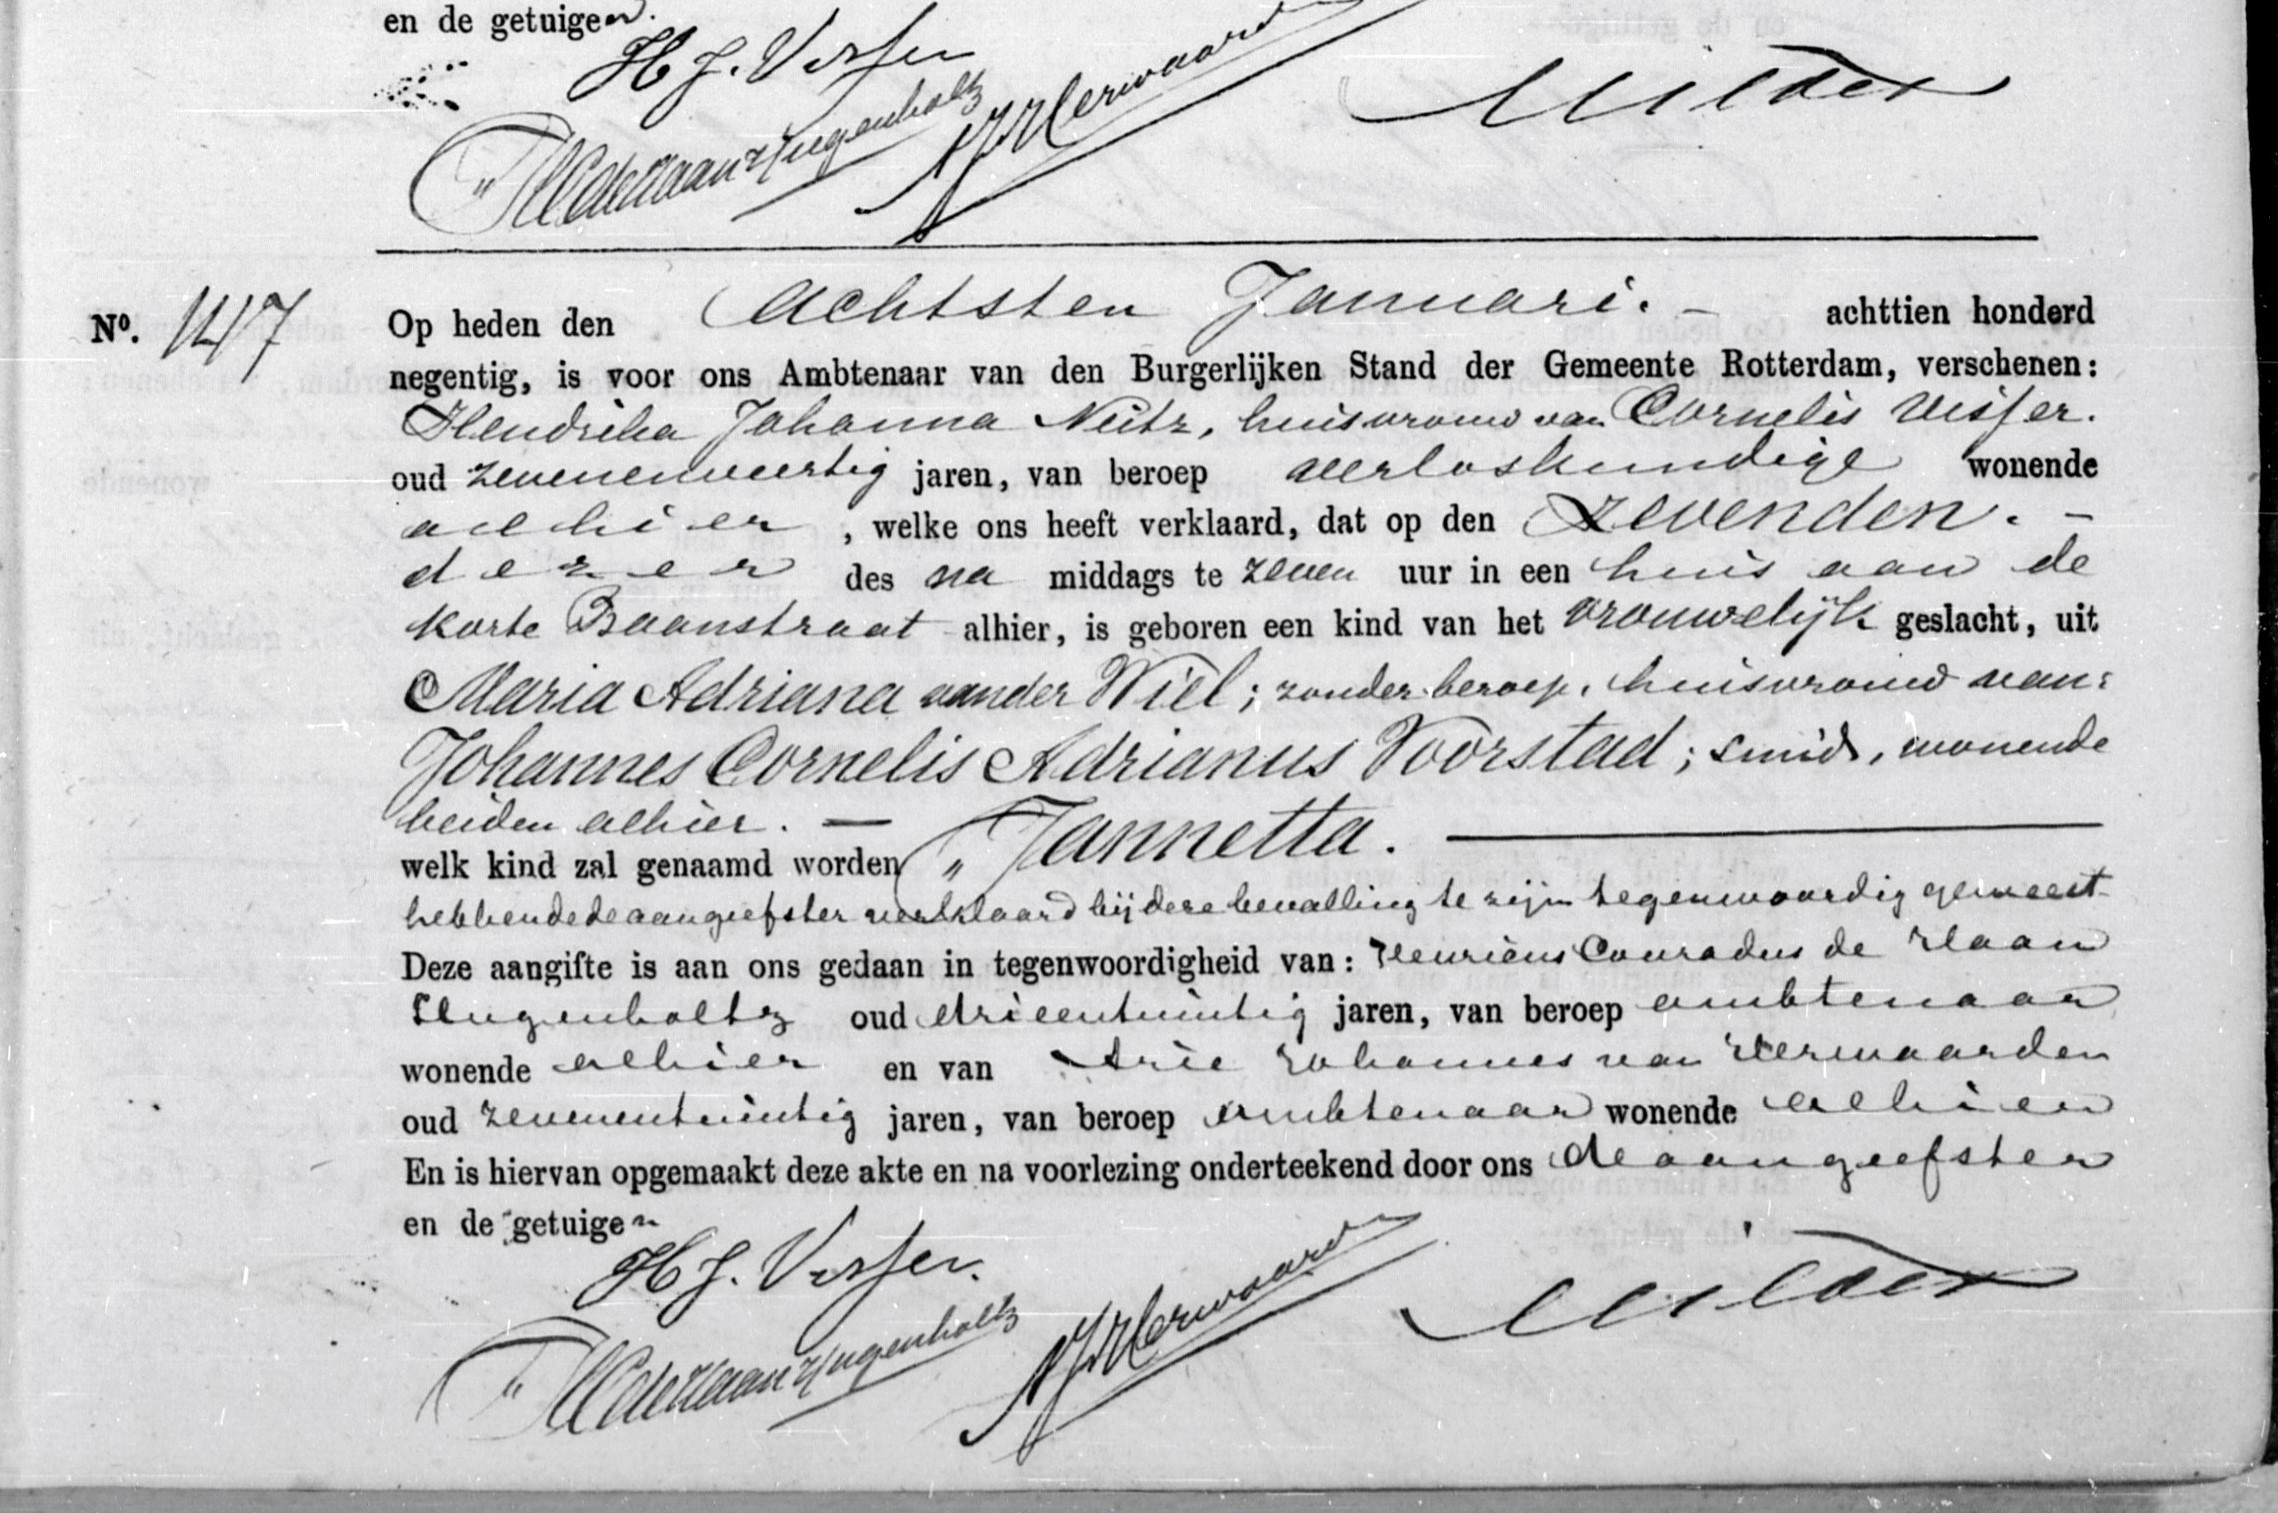 en de getuigen.
H J. Visser
HC de Haan Hugenholtz
AJVHerwaard
Milders
Nº. 147
Op heden den Achtsten Januari. – achttien honderd
negentig, is voor ons Ambtenaar van den Burgerlijken Stand der Gemeente Rotterdam, verschenen:
Hendrika Johanna Neitz, huisvrouw van Cornelis Visser.
oud zevenenveertig jaren, van beroep verloskundige wonende
alhier, welke ons heeft verklaard, dat op den zevenden. –
dezer des na middags te zeven uur in een huis aan de
Korte Baanstraat alhier, is geboren een kind van het vrouwelijk geslacht, uit
Maria Adriana van der Wiel; zonder beroep, huisvrouw van:
Johannes Cornelis Adrianus Voorstad; smid, wonende
beiden alhier. —
welk kind zal genaamd worden „Jannetta.
hebbende de aangeefster verklaard bij deze bevalling te zijn tegenwoordig geweest
Deze aangifte is aan ons gedaan in tegenwoordigheid van: Henricus Conradus de Haan
Hugenholtz oud drieentwintig jaren, van beroep ambtenaar
wonende alhier en van Arie Johannes van Herwaarden
oud zevenentwintig jaren, van beroep ambtenaar wonende alhier
En is hiervan opgemaakt deze akte en na voorlezing onderteekend door ons de aangeefster
en de getuigen
H J. Visser.
HC de Haan Hugenholtz
AJVHerwaard
Milders